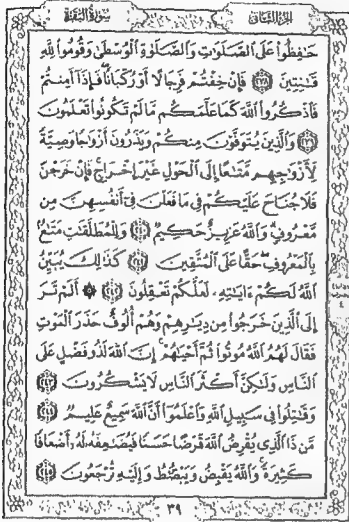 سورة البقرة الجزء الثاني
حَٰفِظُوا۟ عَلَى ٱلصَّلَوَٰتِ وَٱلصَّلَوٰةِ ٱلْوُسْطَىٰ وَقُومُوا۟ لِلَّهِ
قَٰنِتِينَ ﴿٢٣٨﴾ فَإِنْ خِفْتُمْ فَرِجَالًا أَوْ رُكْبَانًا ۖ فَإِذَآ أَمِنتُمْ
فَٱذْكُرُوا۟ ٱللَّهَ كَمَا عَلَّمَكُم مَّا لَمْ تَكُونُوا۟ تَعْلَمُونَ
﴿٢٣٩﴾ وَٱلَّذِينَ يُتَوَفَّوْنَ مِنكُمْ وَيَذَرُونَ أَزْوَٰجًا وَصِيَّةً
لِّأَزْوَٰجِهِم مَّتَٰعًا إِلَى ٱلْحَوْلِ غَيْرَ إِخْرَاجٍ ۚ فَإِنْ خَرَجْنَ
فَلَا جُنَاحَ عَلَيْكُمْ فِى مَا فَعَلْنَ فِىٓ أَنفُسِهِنَّ مِن
مَّعْرُوفٍ ۗ وَٱللَّهُ عَزِيزٌ حَكِيمٌ ﴿٢٤٠﴾ وَلِلْمُطَلَّقَٰتِ مَتَٰعٌۢ
بِٱلْمَعْرُوفِ ۖ حَقًّا عَلَى ٱلْمُتَّقِينَ ﴿٢٤١﴾ كَذَٰلِكَ يُبَيِّنُ
ٱللَّهُ لَكُمْ ءَايَٰتِهِۦ لَعَلَّكُمْ تَعْقِلُونَ ﴿٢٤٢﴾ ۞ أَلَمْ تَرَ
إِلَى ٱلَّذِينَ خَرَجُوا۟ مِن دِيَٰرِهِمْ وَهُمْ أُلُوفٌ حَذَرَ ٱلْمَوْتِ
فَقَالَ لَهُمُ ٱللَّهُ مُوتُوا۟ ثُمَّ أَحْيَٰهُمْ ۚ إِنَّ ٱللَّهَ لَذُو فَضْلٍ عَلَى
ٱلنَّاسِ وَلَٰكِنَّ أَكْثَرَ ٱلنَّاسِ لَا يَشْكُرُونَ ﴿٢٤٣﴾
وَقَٰتِلُوا۟ فِى سَبِيلِ ٱللَّهِ وَٱعْلَمُوٓا۟ أَنَّ ٱللَّهَ سَمِيعٌ عَلِيمٌ ﴿٢٤٤﴾
مَّن ذَا ٱلَّذِى يُقْرِضُ ٱللَّهَ قَرْضًا حَسَنًا فَيُضَٰعِفَهُۥ لَهُۥٓ أَضْعَافًا
كَثِيرَةً ۚ وَٱللَّهُ يَقْبِضُ وَيَبْصُۜطُ وَإِلَيْهِ تُرْجَعُونَ ﴿٢٤٥﴾
٣٩